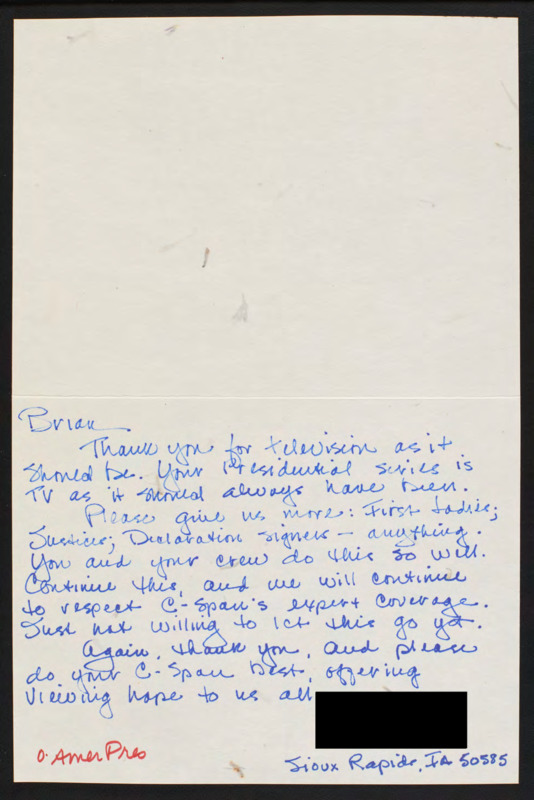 Brian
Thank you for television as it
should be. Your Presidential series is
TV as it should always have been.
Please give us more: First Ladies;
Justices; Declaration signers - anything.
You and your crew do this so well.
Continue this, and we will continue
to respect C-Span's expert coverage.
Just not willing to let this go yet.
Again, thank you, and please
do your C-Span best, offering
viewing hope to us all
O. AmerPres
Sioux Rapids, IA 50585